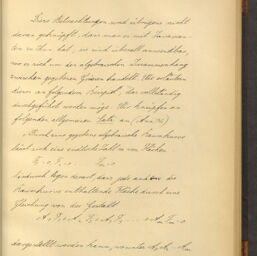 Diese Betrachtungen sind übrigens nicht
daran geknüpft, dass man es mit Invarian-
ten zu thun hat, sie sind überall anwendbar,
wo es sich um den algebraischen Zusammenhang
zwischen gegebenen Grössen handelt. Wir erläutern
dieses an folgendem Beispiel, das vollständig
durchgeführt werden möge. Wir knüpfen an
folgenden allgemeinen Satz an
Durch eine gegebene algebraische Raumkurve
lässt sich eine endliche Zahl von Flächen
F₁=0, F₂=0 ..... Fₘ=0
hindurch legen derart, dass jede andere die
Raumkurve enthaltende Fläche durch eine
Gleichung von der Gestalt
A₁F₁ + A₂F₂ + ..... + AₘFₘ = 0
dargestellt werden kann, wo unter A₁, A₂ ... Aₘ